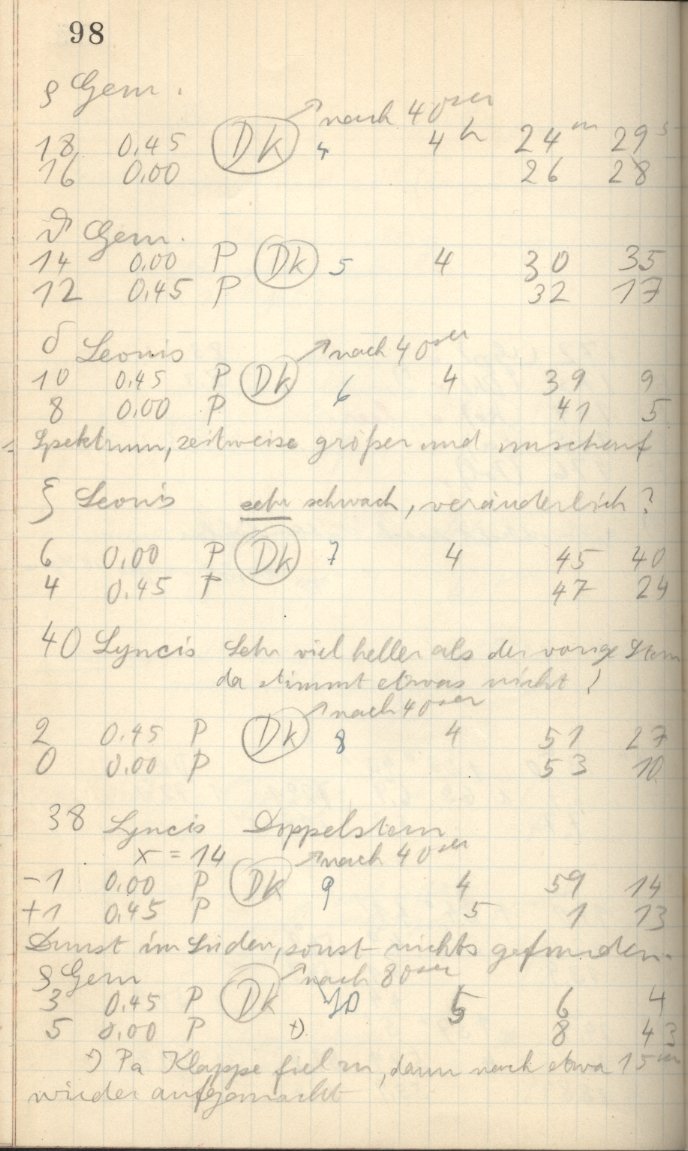 98
ϱ Gem.
↗ nach 40 ser
18 0.45 Dk 4 4h 24m 29s
16 0.00 26 28
ϑ Gem.
14 0.00 P Dk 5 4 30 35
12 0.45 P 32 17
δ Leonis ↗ nach 40 ser
10 0.45 P Dk 6 4 39 9
8 0.00 P 41 5
Spektrum, zeitweise größer und unscharf
ξ Leonis sehr schwach, veränderlich?
6 0.00 P Dk 7 4 45 40
4 0.45 P 47 24
40 Lyncis Sehr viel heller als der vorige Stern
da stimmt etwas nicht!
↗ nach 40 ser
2 0.45 P Dk 8 4 51 27
0 0.00 P 53 10
38 Lyncis Doppelstern
x = 14 ↗ nach 40 ser
-1 0.00 P Dk 9 4 59 14
+1 0.45 P 5 1 13
Dunst im Süden, sonst nichts gefunden.
ϱ Gem ↗ nach 80 ser
3 0.45 P Dk 10 5 6 4
5 0.00 P 8 43
Pa Klappe fiel zu, dann nach etwa 15
wieder aufgemacht